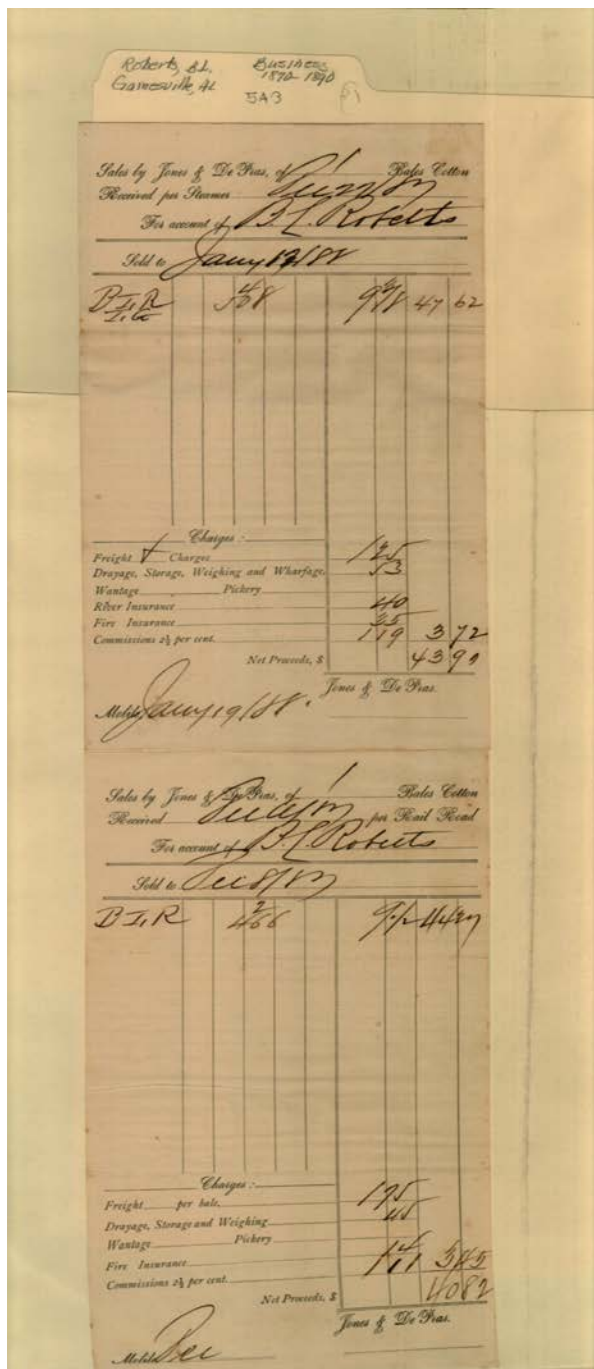 Roberts, B.L. Business
Gainesville, AL 1870-1890
5A3
Sales by Jones & De Pras, of 1 Bales Cotton
Received per Steamer
For account of B. L. Roberts
Sold to Jany 19/88
B L R 47 62
Charges:
Freight & Charges 125
Drayage, Storage, Weighing and Wharfage, 53
Wantage Pickery
River Insurance 40
Fire Insurance 35
Commissions 2½ per cent. 119 3 72
Net Proceeds, $ 43 90
Jones & De Pras.
Mobile, Jany 19/88.
Sales by Jones & De Pras, of 1 Bales Cotton
Received per Rail Road
For account of B. L. Roberts
Sold to Dec 8/87
B L R 466
Charges:
Freight per bale,
Drayage, Storage and Weighing
Wantage Pickery
Fire Insurance
Commissions 2½ per cent. 3 45
Net Proceeds, $ 40 82
Jones & De Pras.
Mobile, Dec